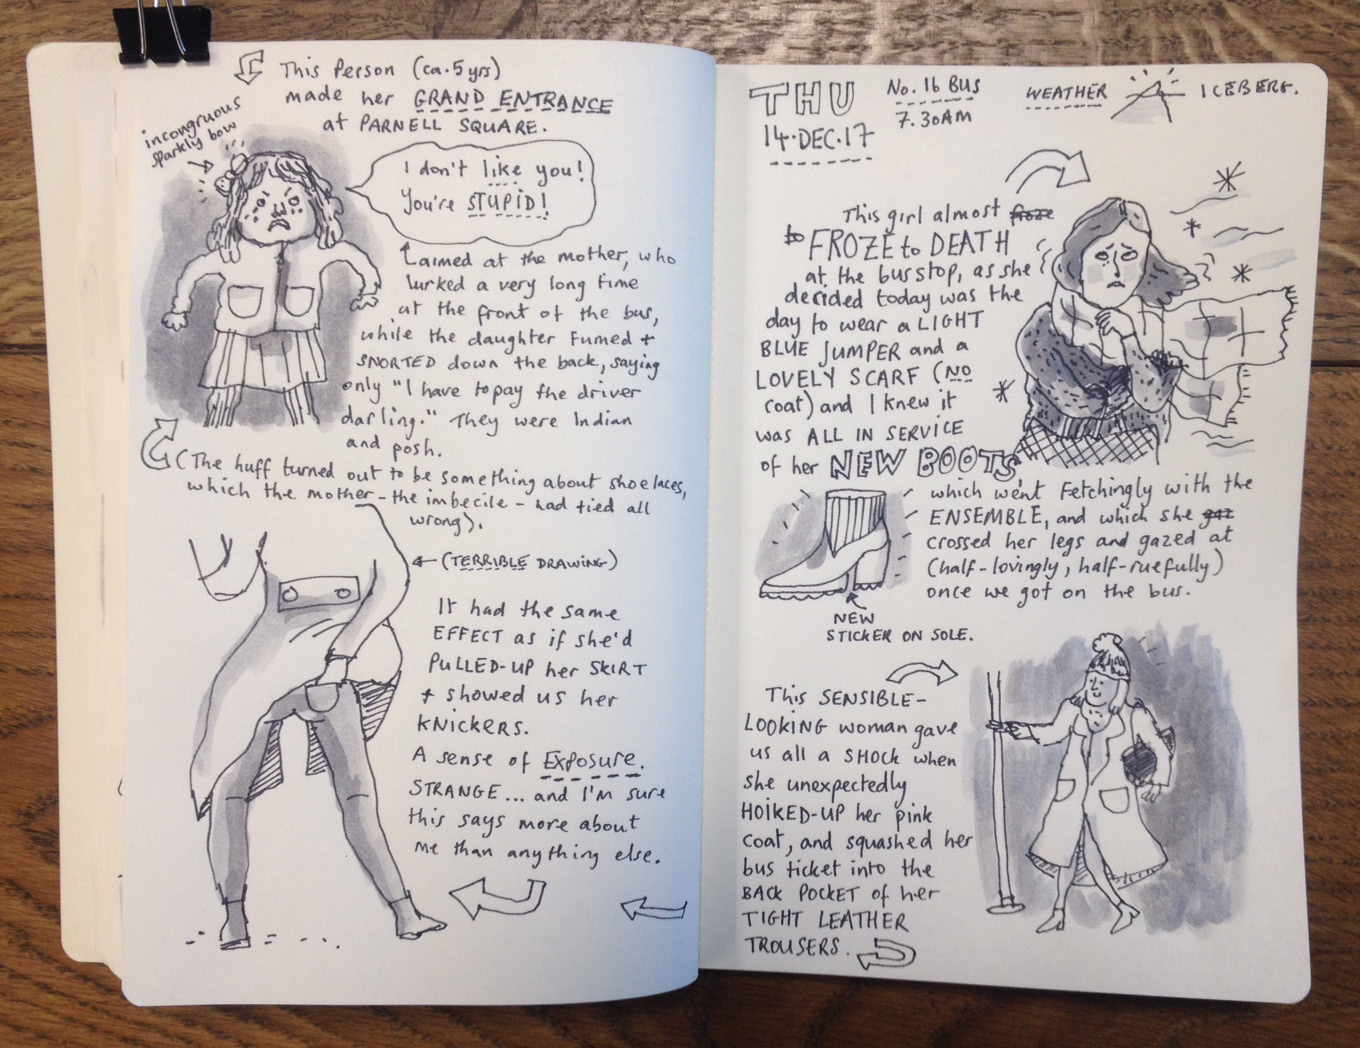 This Person (ca. 5 yrs)
made her GRAND ENTRANCE
at PARNELL SQUARE.
incongruous
sparkly bow
I don't like you!
You're STUPID!
aimed at the mother, who
lurked a very long time
at the front of the bus,
while the daughter fumed +
SNORTED down the back, saying
only "I have to pay the driver
darling." They were Indian
and posh.
(The huff turned out to be something about shoelaces,
which the mother - the imbecile - had tied all
wrong).
(TERRIBLE DRAWING)
It had the same
EFFECT as if she'd
PULLED-UP her SKIRT
+ showed us her
KNICKERS.
A sense of Exposure.
STRANGE... and I'm sure
this says more about
me than anything else.
THU
14.DEC.17
No. 16 BUS
7.30AM
WEATHER
ICEBERG.
This girl almost froze
to FROZE to DEATH
at the bus stop, as she
decided today was the
day to wear a LIGHT
BLUE JUMPER and a
LOVELY SCARF (NO
coat) and I knew it
was ALL IN SERVICE
of her NEW BOOTS
which went fetchingly with the
ENSEMBLE, and which she
crossed her legs and gazed at
(half-lovingly, half-ruefully)
once we got on the bus.
NEW
STICKER ON SOLE.
This SENSIBLE-
LOOKING woman gave
us all a SHOCK when
she unexpectedly
HOIKED-UP her pink
coat, and squashed her
bus ticket into the
BACK POCKET of her
TIGHT LEATHER
TROUSERS.